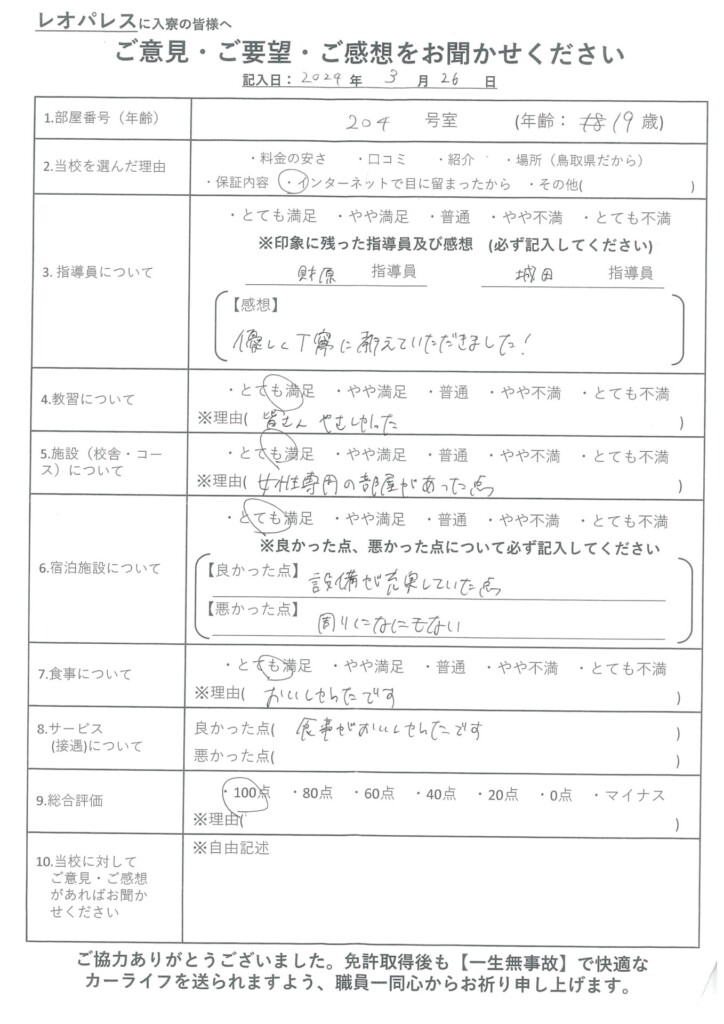 レオパレスに入寮の皆様へ
ご意見・ご要望・ご感想をお聞かせください
記入日：2024年 3 月 26 日
1.部屋番号（年齢） 204 号室 (年齢： 19 歳)
2.当校を選んだ理由 ・料金の安さ ・口コミ ・紹介 ・場所（鳥取県だから）
・保証内容 ・インターネットで目に留まったから ・その他( )
3.指導員について ・とても満足 ・やや満足 ・普通 ・やや不満 ・とても不満
※印象に残った指導員及び感想 (必ず記入してください)
財原 指導員 城田 指導員
【感想】
優しく丁寧に教えていただきました！
4.教習について ・とても満足 ・やや満足 ・普通 ・やや不満 ・とても不満
※理由( 皆さん やさしかった )
5.施設（校舎・コー
ス）について ・とても満足 ・やや満足 ・普通 ・やや不満 ・とても不満
※理由( 女性専用の部屋があった点 )
6.宿泊施設について ・とても満足 ・やや満足 ・普通 ・やや不満 ・とても不満
※良かった点、悪かった点について必ず記入してください
【良かった点】 設備が充実していた点
【悪かった点】 周りになにもない
7.食事について ・とても満足 ・やや満足 ・普通 ・やや不満 ・とても不満
※理由( おいしかったです )
8.サービス
(接遇)について
良かった点( 食事がおいしかったです )
悪かった点( )
9.総合評価 ・100点 ・80点 ・60点 ・40点 ・20点 ・0点 ・マイナス
※理由( )
10.当校に対して
ご意見・ご感想
があればお聞か
せください
※自由記述
ご協力ありがとうございました。免許取得後も【一生無事故】で快適な
カーライフを送られますよう、職員一同心からお祈り申し上げます。